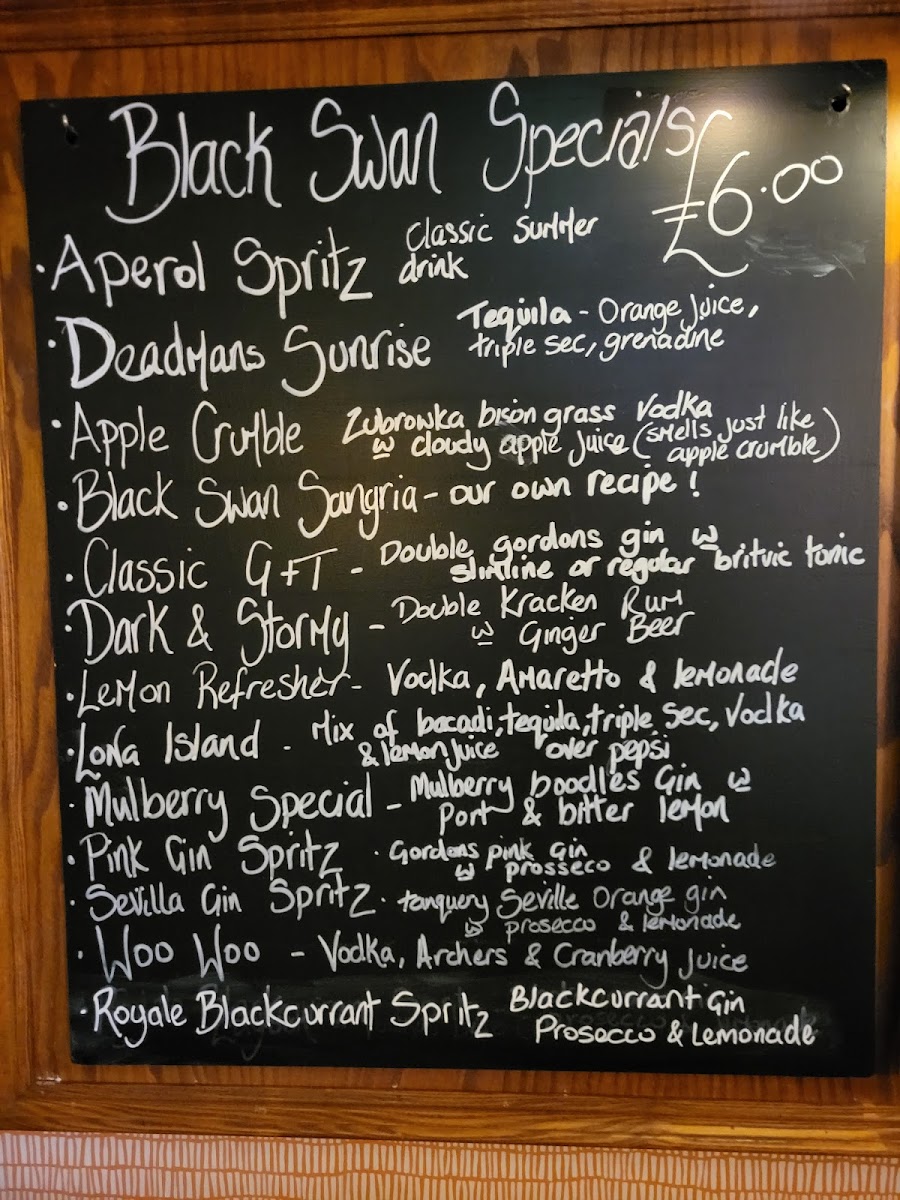 Black Swan Specials £6.00
· Aperol Spritz Classic Summer
drink
· Deadmans Sunrise Tequila - Orange Juice,
triple sec, grenadine
· Apple Crumble Zubrowka bison grass Vodka
w cloudy apple juice (smells just like
apple crumble)
· Black Swan Sangria - our own recipe!
· Classic G+T - Double gordons gin w
slimline or regular britvic tonic
· Dark & Stormy - Double Kracken Rum
w Ginger Beer
· Lemon Refresher - Vodka, Amaretto & lemonade
· Long Island - Mix of bacadi, tequila, triple sec, Vodka
& lemon juice over pepsi
· Mulberry Special - Mulberry boodles Gin w
Port & bitter lemon
· Pink Gin Spritz · Gordons pink Gin
w prosseco & lemonade
· Sevilla Gin Spritz · tanquery Seville Orange gin
w prosecco & lemonade
· Woo Woo - Vodka, Archers & Cranberry Juice
· Royale Blackcurrant Spritz Blackcurrant Gin
Prosecco & Lemonade